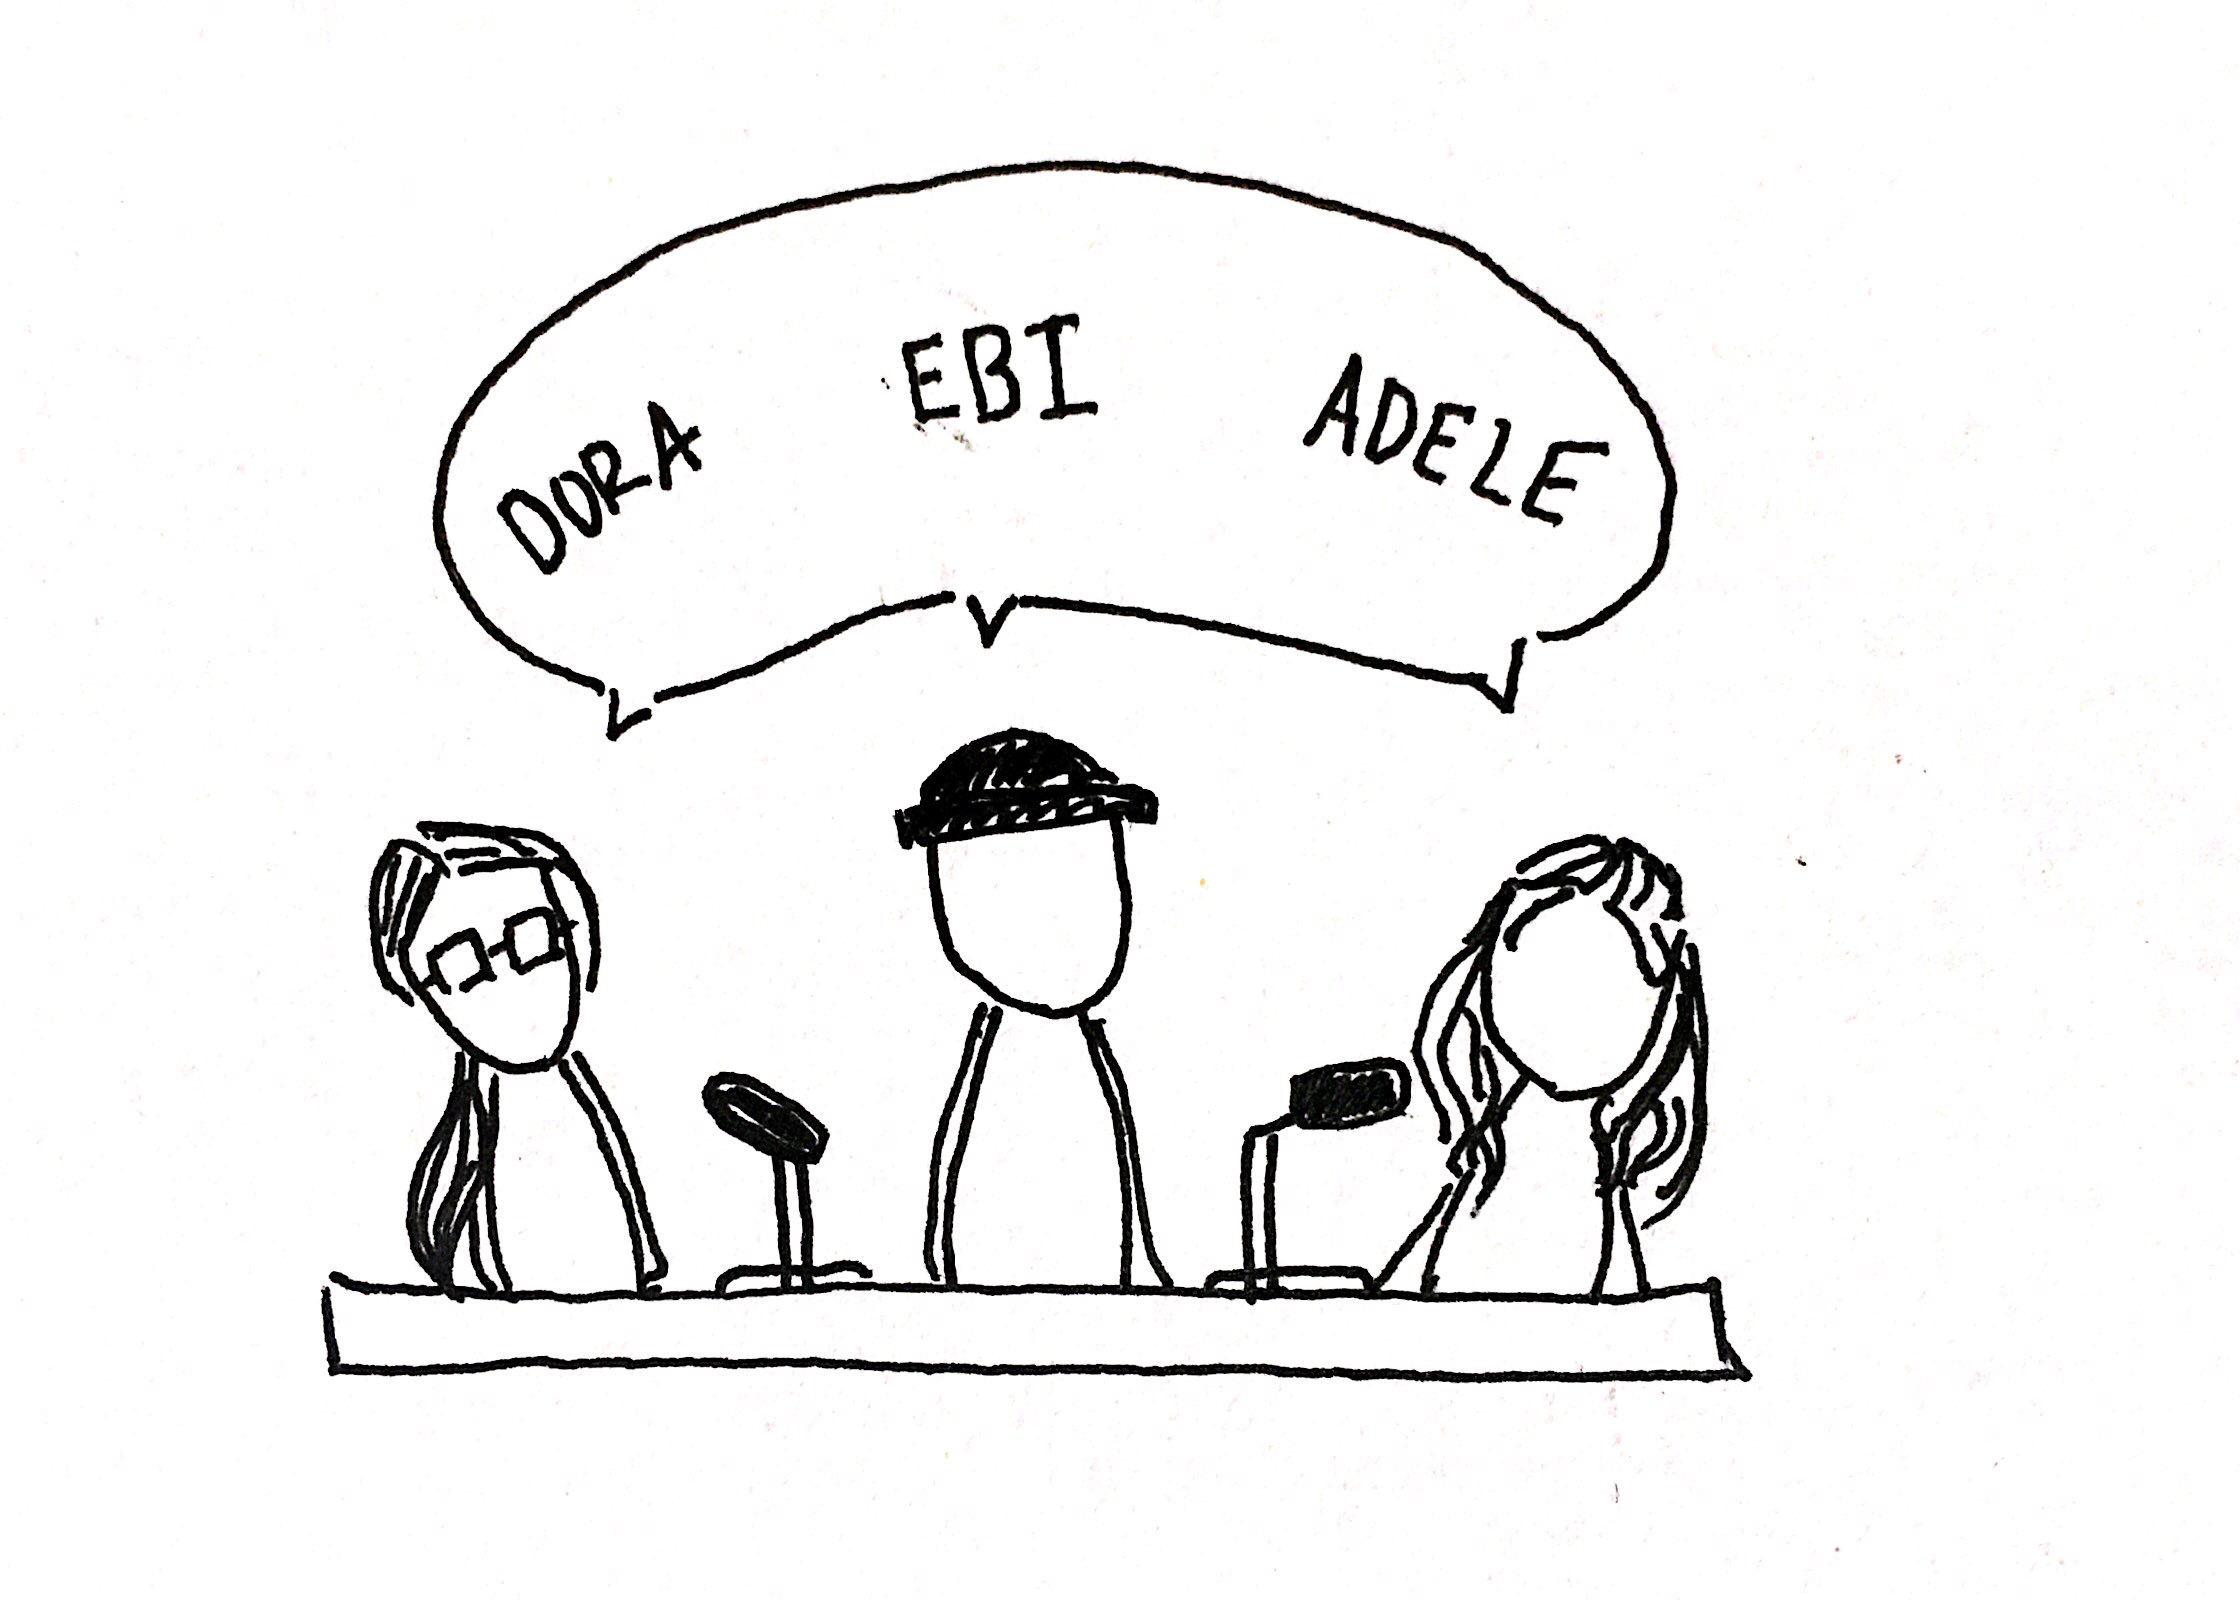 DORA EBI ADELE